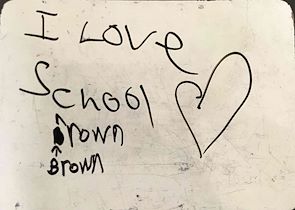 I Love
School
Brown
Brown